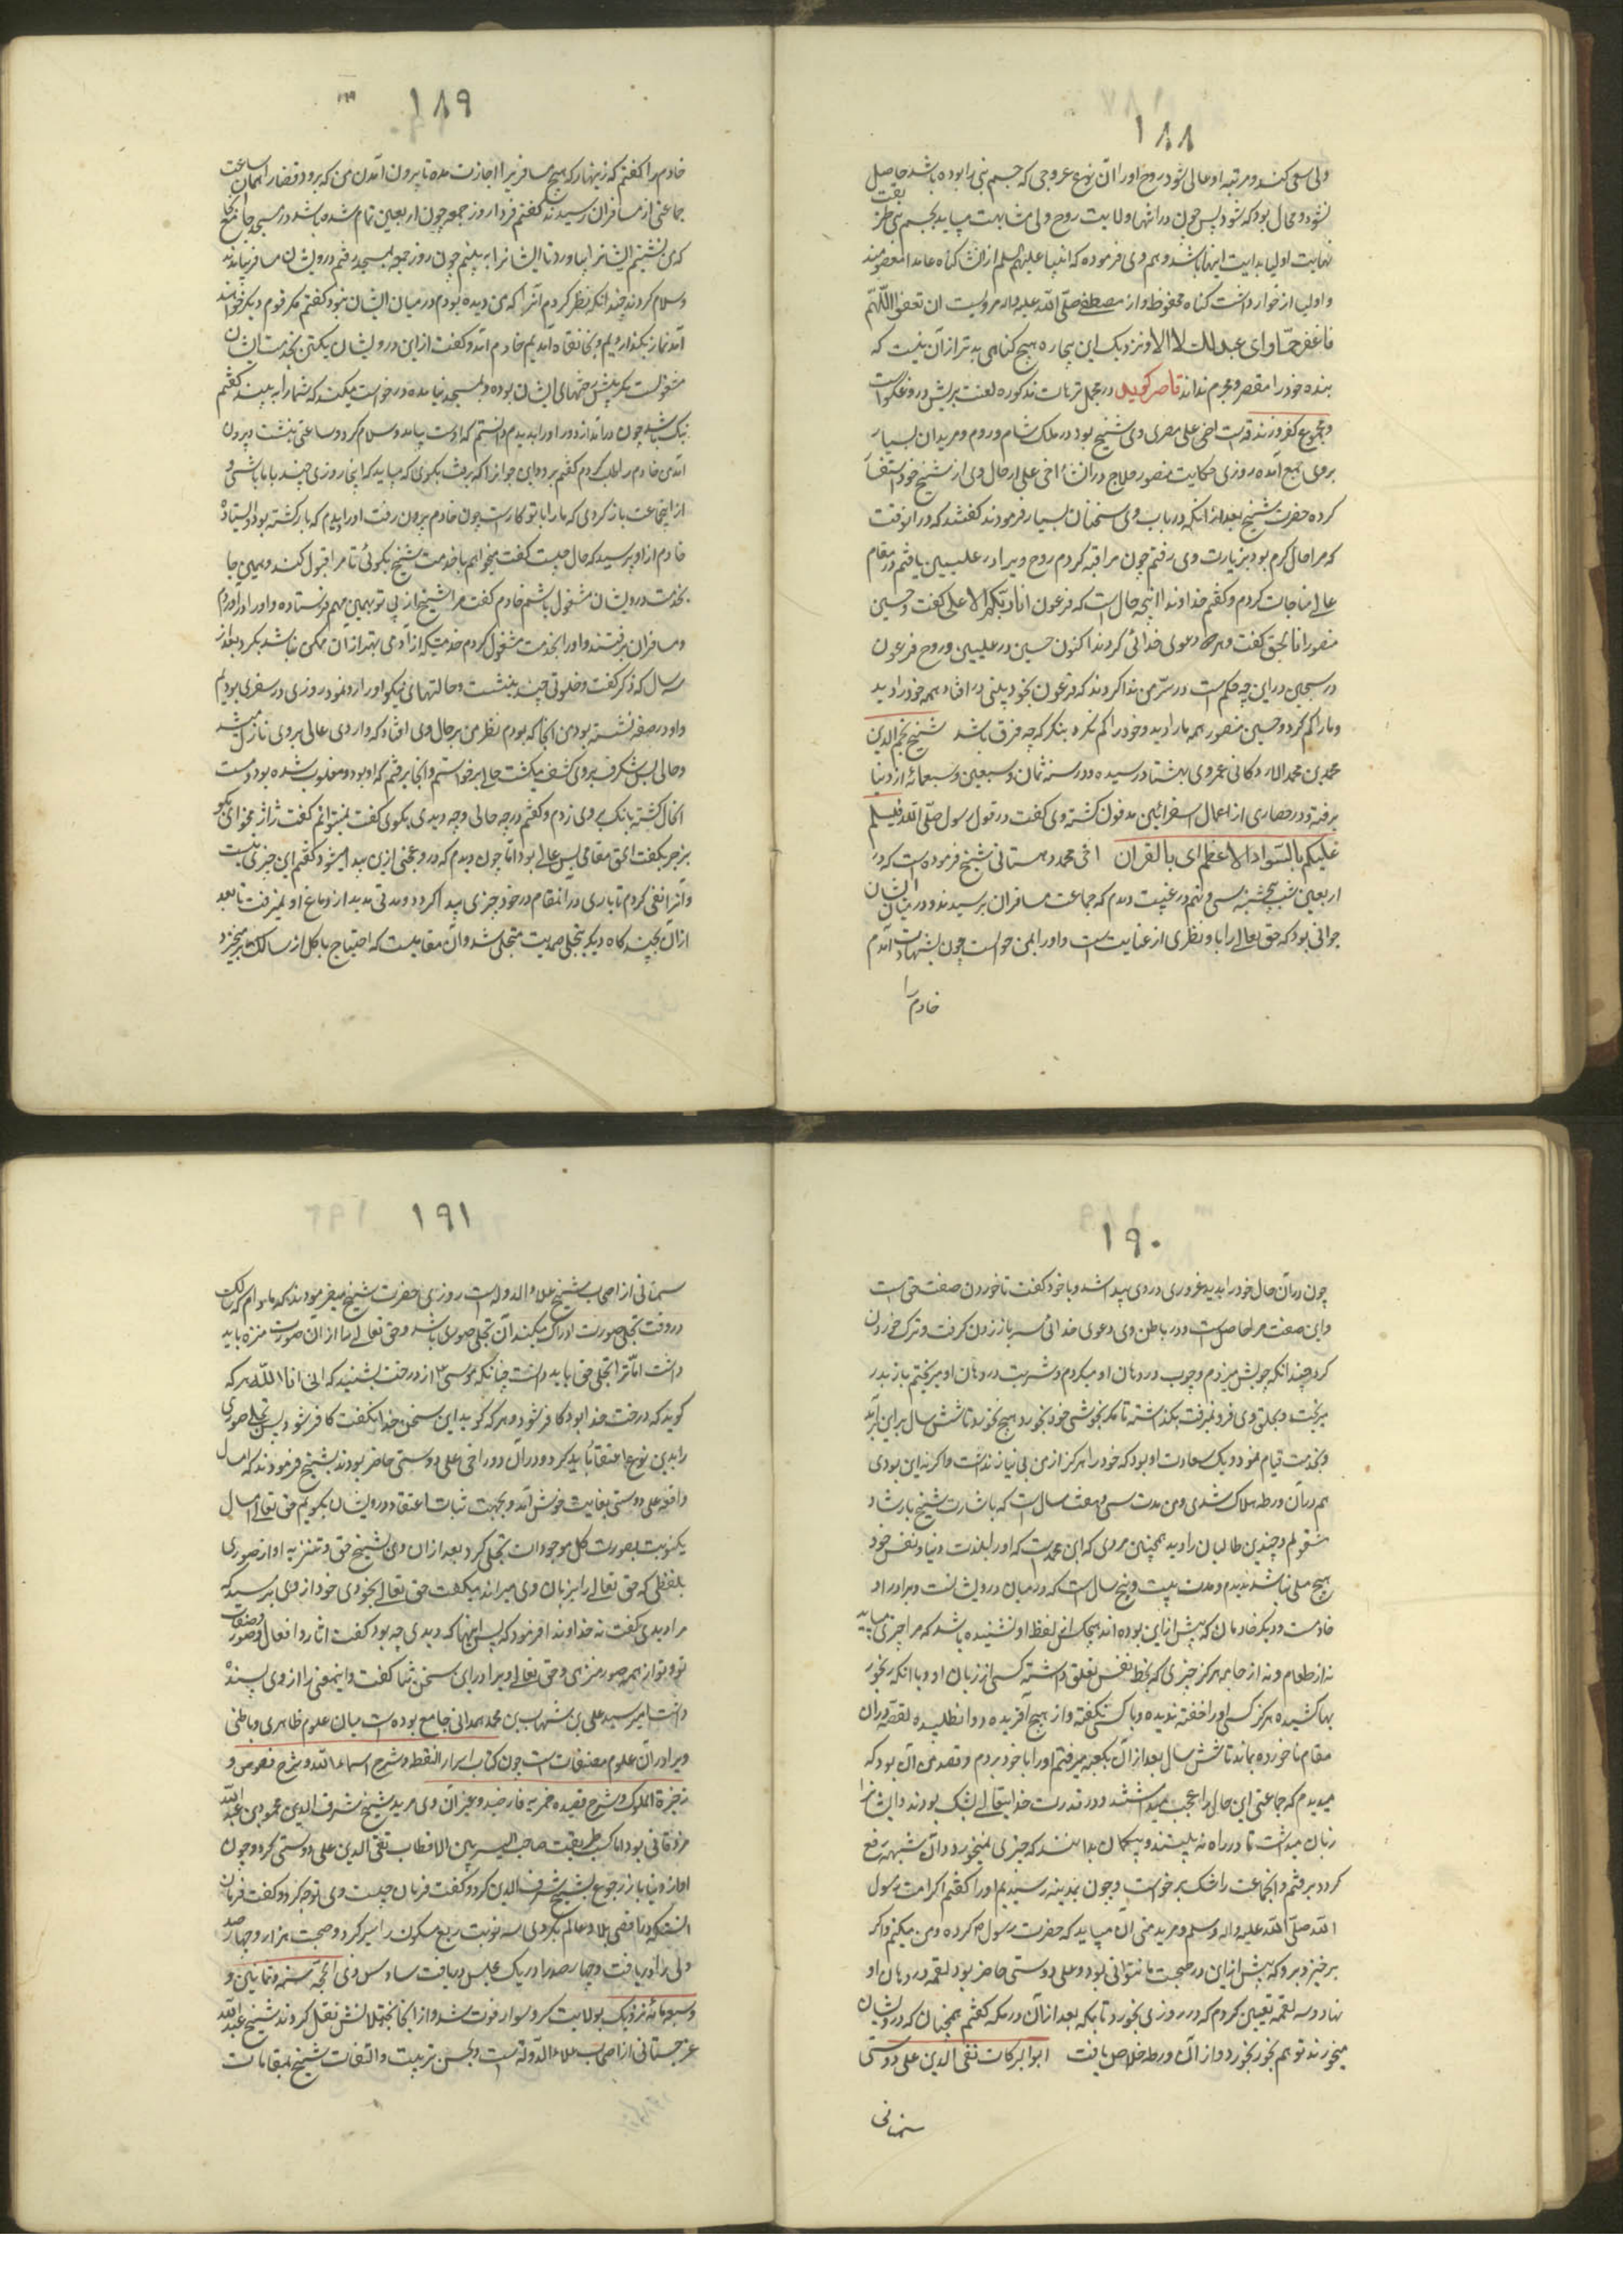 ۱۸۸
ولی سعی کند و مرتبه او عالی شود روح او را آن نوع عروجی که جسم نبی را بوده باشد حاصل
نشود و محال بود که شود پس چون در انتها ولایت روح ولی مشابهت بیابد بجسم نبی
نهایت اولیا بدایت انبیا باشد و هم وی فرموده که انبیا علیهم السلم از انشا کناه عامدا معصومند
و اولیا از خوار داشت کناه محفوظ و از مصطفی صلی الله علیه واله مرویست ان تغفر اللهم
فاغفر جمّا و ای عبد لک لا الما و نزدیک این بیچاره هیچ کناهی بدتر از آن نیست که
بنده خود را مقصر و مجرم نداند قاصر کوید در مجمل ترهات مذکوره لعنت بریش دروغکواست
و مجموع کفر و زندقه است اخی علی مصری وی شیخ بود در ملک شام و روم و مریدان بسیار
بروی جمع آمده روزی حکایت منصور حلاج در اثنا اخی علی از حال وی از شیخ خود استفسار
کرده حضرت شیخ بعد از آنکه در باب وی سخنان بسیار فرمودند کفتند که در آنوقت
که مرا حال کرم بود بزیارت وی رفتم چون مراقبه کردم روح ویرا در علیین یافتم در مقام
عالی مناجات کردم و کفتم خداوندا این چه حال است که فرعون انا ربکم الاعلی کفت و حسین
منصور انا الحق کفت و هر دو دعوی خدائی کردند اکنون حسین در علیین و روح فرعون
در سجین در این چه حکم است در سرّ من ندا کردند که فرعون بخود بینی در افتاد و همه خود را دید
و ما را کم کرد و حسین منصور همه ما را دید و خود را کم کرد بنکر که چه فرق باشد شیخ نجم الدین
محمد بن محمد الادکانی عمر وی بهشتاد رسیده و در سنه ثمان و سبعین و سبعمائه از دنیا
برفته و در حصاری از اعمال اسفراین مدفون کشته وی کفت در قول رسول صلی الله علیه
علیکم بالسواد الاعظم ای بالقران اخی محمد دهستانی شیخ فرموده است که در
اربعین شب پنجشنبه سی و نهم در غیبت دیدم که جماعت مسافران برسیدند و در میان ایشان
جوانی بود که حق تعالی را با او نظری از عنایت است و او را بمن حواله است چون بشهادت آمدم
خادم را
۱۸۹
خادم را کفتم که زینهار که هیچ مسافر را اجازت مده تا بیرون آمدن من که برود قضا را همان ساعت
جماعتی از مسافران رسیدند کفتم فردا روز جمعه چون اربعین تمام شده باشد در مسجد جامع آنجا
که من نشینم ایشانرا بیاور تا ایشانرا به بینم چون روز جمعه بمسجد رفتم درویشان مسافر بیامدند
و سلام کردند چندانکه نظر کردم آنرا که من دیده بودم در میان ایشان نبود کفتم مکر قوم دیکر خواهند
آمد نماز بکذاردیم و بخانقاه آمدیم خادم آمد و کفت از این درویشان یکتن بخدمت ایشان
مشغولست مکر پیش رختهای ایشان بوده و بمسجد نیامده درخواست میکند که شما را به بیند کفتم
نیک باشد چون درآمد از دور او را بدیدم دانستم که اوست بیامد و سلام کرد و ساعتی بنشست و بیرون
آمد من خادم را طلب کردم کفتم برو و این جوانرا که برفت بکوی که میباید که اینجا روزی چند با ما باشی و
از این جماعت باز کردی که ما را با تو کاریست چون خادم بیرون رفت او را بدیدم که بازکشته بود و ایستاده
خادم از او پرسید که حال چیست کفت میخواهم با خدمت شیخ بکوئی تا مرا قبول کند و همین جا
بخدمت درویشان مشغول باشم خادم کفت مرا شیخ از پی تو بهمین مهم فرستاده و او را درآوردم
و مسافران برفتند و او را بخدمت مشغول کردم خدمتیکه از آدمی بهتر از آن ممکن نباشد بکرد بعد از
سه سال که ذکر کفت و خلوتی چند بنشست و حالتهای نیکو او را رو نمود روزی در سفری بودیم
و او در صفه نشسته بود من آنجا که بودم نظر من بر حال وی افتاد که واردی عالی بر وی نازل میشد
و حالی بس شکرف بر وی کشف میکشت حالی برخواستم و آنجا برفتم که او بود و مغلوب شده بود و مست
آنحال کشته بانک بر وی زدم و کفتم در چه حالی و چه دیدی بکوی کفت نمیتوانم کفت
بزجر بکفت الحق مقامی بس عالی بود اما چون دیدم که در وی عجبی از این پیدا میشود کفتم این چیزی نیست
و آنرا نفی کردم تا باری در آنمقام در خود چیزی پیدا کرد و مدتی مدید از دماغ او نمیرفت تا بعد
از آن بچند کاه دیکر بتجلی صمدیت متجلی شد و آن مقامیست که احتیاج باکل از سالک میخیزد
۱۹۰
چون در آن حال خود را بدید غروری در وی پیدا شد و با خود کفت ناخوردن صفت حق است
و این صفت مرا حاصل است و در باطن وی دعوی خدائی سر باز زدن کرفت و ترک خوردن
کرد و چندانکه چوبش میزدم و چوب در دهان او میکردم و شربت در دهان او میریختم باز بدر
میریخت و بحلق وی فرو نمیرفت بکذاشته تا مکر بخوشی خود بخورد هیچ نخورد تا شش سال بر این برآمد
و بخدمت قیام نمود و یک سعادت او بود که خود را هرکز از من بی نیاز نداشت و اکر نه این بودی
هم در آن ورطه هلاک شدی و من مدت سی و هفت سال است که باشارت شیخ بارشاد
مشغولم و چندین طالبان را دیده همچنین مردی که این محمد است که او را بلذت دنیا و نفس خود
هیچ میلی نباشد ندیدم و مدت بیست و پنج سال است که در میان درویشانست و برادر او
خادمست و دیکر خادمان که پیش از این بوده اند هیچکس این لفظ از او نشنیده باشد که مرا چیزی میباید
نه از طعام و نه از جامه هرکز چیزی که بحظ نفس تعلق داشته کسی از زبان او و با آنکه رنجور
بها کشیده هرکز کسی او را خفته ندیده و با کسی نکفته و از هیچ آفریده دوا نطلبیده القصه در آن
مقام ناخورده بماند تا شش سال بعد از آن بکعبه میرفتم او را با خود بردم و قصد من آن بود که
میدیدم که جماعتی این حال را عجب میداشتند و در قدرت خدایتعالی بشک بودند و ایشانرا
زیان میداشت تا در راه به بینند و بیکمان بدانند که چیزی نمیخورد و آن شبهه رفع
کردد برفتم و آنجماعت را شک برخواست و چون بمدینه رسیدیم او را کفتم اکر امت رسول
الله صلی الله علیه واله وسلم و مرید منی آن میباید که حضرت رسول ص کرده و من میکنم و اکر نه
برخیز و برو که بیش از این در صحبت ما نتوانی بود و علی دوستی حاضر بود لقمه در دهان او
نهاد و سه لقمه تعیین کردم که در روزی بخورد تا بمکه بعد از آن در مکه کفتم همچنان که درویشان
میخورند تو هم بخور بخورد و از آن ورطه خلاص یافت ابوالبرکات تقی الدین علی دوستی
سمنانی
۱۹۱
سمنانی از اصحاب شیخ علاء الدوله است روزی حضرت شیخ میفرمودند که مادام که سالک
در وقت تجلی صورت ادراک میکند آن تجلی صوری باشد و حق تعالی را از آن صورت منزه باید
داشت اما آنرا تجلی حق باید دانست چنانکه موسی ع از درخت بشنید که انی انا الله هر که
کوید که درخت خدا بود کافر شود و هر که کوید این سخن خدا نکفت کافر شود پس تجلی صوری
را بدین نوع اعتقاد باید کرد و در آن دور اخی علی دوستی حاضر بودند شیخ فرمودند که امسال
واقعه علی دوستی بغایت خوش آمد و بجهت ثبات اعتقاد درویشان بکویم حق تعالی امسال
یکنوبت بصورت کل موجودات تجلی کرد بعد از آن وی شیخ حق و تنزیه او از صوری
بلفظی که حق تعالی را بر زبان وی میراند میکفت حق تعالی بخودی خود از وی پرسید که
مرا دیدی کفت نه خداوندا فرمود که پس اینها که دیدی چه بود کفت اثار و افعال و صور و صفات
تو و تو از همه صور منزهی و حق تعالی ویرا در این سخن ثنا کفت و اینمعنی را از وی پسندیده
داشت امیر سید علی بن شهاب بن محمد همدانی جامع بوده است میان علوم ظاهری و باطنی
ویرا در آن علوم مصنفات است چون کتاب اسرار النقطه و شرح اسماء الله و شرح فصوص و
ذخیرة الملوک و شرح قصیده خمریه فارضیه و غیر آن وی مرید شیخ شرف الدین محمود بن عبدالله
مزدقانی بود اما کسب طریقت صاحب السر بین الاقطاب تقی الدین علی دوستی کرد و چون
او از دنیا باز رجوع بشیخ شرف الدین کرد و کفت فرمان چیست وی توجه کرد و کفت فرمان
آنست که در اقصی بلاد عالم بکردی سه نوبت ربع مسکون را سیر کرد و صحبت هزار و چهارصد
ولی را دریافت و چهارصد را در یک مجلس دریافت سادس ذی الحجه سنه و ثمانین و
سبعمائه نزدیک بولایت کبر و سواد فوت شد و از آنجا بختلانش نقل کردند شیخ عبدالله
غرجستانی از اصحاب علاء الدوله است و بحسن تربیت و التفات شیخ بمقامات